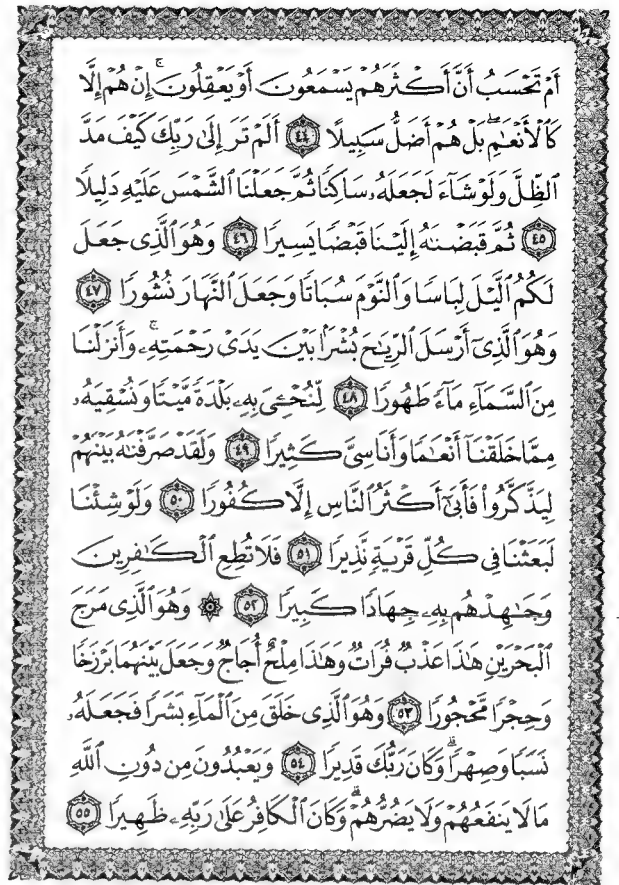 أَمْ تَحْسَبُ أَنَّ أَكْثَرَهُمْ يَسْمَعُونَ أَوْ يَعْقِلُونَ ۚ إِنْ هُمْ إِلَّا
كَالْأَنْعَٰمِ ۖ بَلْ هُمْ أَضَلُّ سَبِيلًا ٤٤ أَلَمْ تَرَ إِلَىٰ رَبِّكَ كَيْفَ مَدَّ
ٱلظِّلَّ وَلَوْ شَآءَ لَجَعَلَهُۥ سَاكِنًا ثُمَّ جَعَلْنَا ٱلشَّمْسَ عَلَيْهِ دَلِيلًا
٤٥ ثُمَّ قَبَضْنَٰهُ إِلَيْنَا قَبْضًا يَسِيرًا ٤٦ وَهُوَ ٱلَّذِى جَعَلَ
لَكُمُ ٱلَّيْلَ لِبَاسًا وَٱلنَّوْمَ سُبَاتًا وَجَعَلَ ٱلنَّهَارَ نُشُورًا ٤٧
وَهُوَ ٱلَّذِىٓ أَرْسَلَ ٱلرِّيَٰحَ بُشْرًۢا بَيْنَ يَدَىْ رَحْمَتِهِۦ ۚ وَأَنزَلْنَا
مِنَ ٱلسَّمَآءِ مَآءً طَهُورًا ٤٨ لِّنُحْـِۧىَ بِهِۦ بَلْدَةً مَّيْتًا وَنُسْقِيَهُۥ
مِمَّا خَلَقْنَآ أَنْعَٰمًا وَأَنَاسِىَّ كَثِيرًا ٤٩ وَلَقَدْ صَرَّفْنَٰهُ بَيْنَهُمْ
لِيَذَّكَّرُوا۟ فَأَبَىٰٓ أَكْثَرُ ٱلنَّاسِ إِلَّا كُفُورًا ٥٠ وَلَوْ شِئْنَا
لَبَعَثْنَا فِى كُلِّ قَرْيَةٍ نَّذِيرًا ٥١ فَلَا تُطِعِ ٱلْكَٰفِرِينَ
وَجَٰهِدْهُم بِهِۦ جِهَادًا كَبِيرًا ٥٢ ۞ وَهُوَ ٱلَّذِى مَرَجَ
ٱلْبَحْرَيْنِ هَٰذَا عَذْبٌ فُرَاتٌ وَهَٰذَا مِلْحٌ أُجَاجٌ وَجَعَلَ بَيْنَهُمَا بَرْزَخًا
وَحِجْرًا مَّحْجُورًا ٥٣ وَهُوَ ٱلَّذِى خَلَقَ مِنَ ٱلْمَآءِ بَشَرًا فَجَعَلَهُۥ
نَسَبًا وَصِهْرًا ۗ وَكَانَ رَبُّكَ قَدِيرًا ٥٤ وَيَعْبُدُونَ مِن دُونِ ٱللَّهِ
مَا لَا يَنفَعُهُمْ وَلَا يَضُرُّهُمْ ۗ وَكَانَ ٱلْكَافِرُ عَلَىٰ رَبِّهِۦ ظَهِيرًا ٥٥